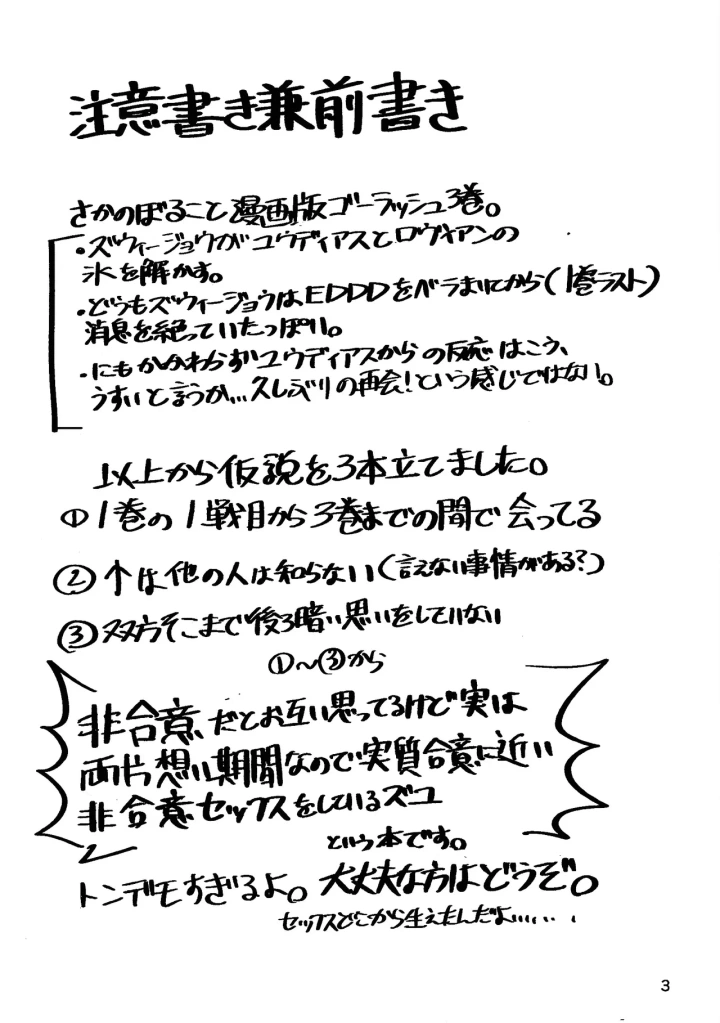 注意書き兼前書き
さかのぼること漫画版ゴーラッシュ3巻。
・ズウィージョウがユウディアスとロヴィアンの
氷を解かす。
・どうもズウィージョウはEDDDをベラまいてから(1巻ラスト)
消息を絶っていたっぽい。
・にもかかわらずユウディアスからの反応はこう、
うすいと言うか…久しぶりの再会!という感じではない。
以上から仮説を3本立てました。
①1巻の1戦目から3巻までの間で会ってる
②↑は他の人は知らない(言えない事情がある?)
③双方そこまで後ろ暗い思いをしていない
①～③から
非合意だとお互い思ってるけど実は
両片想い期間なので実質合意に近い
非合意セックスをしているズユ
という本です。
トンデモすぎるよ。大丈夫な方はどうぞ。
セックスどこから生えたんだよ……
3